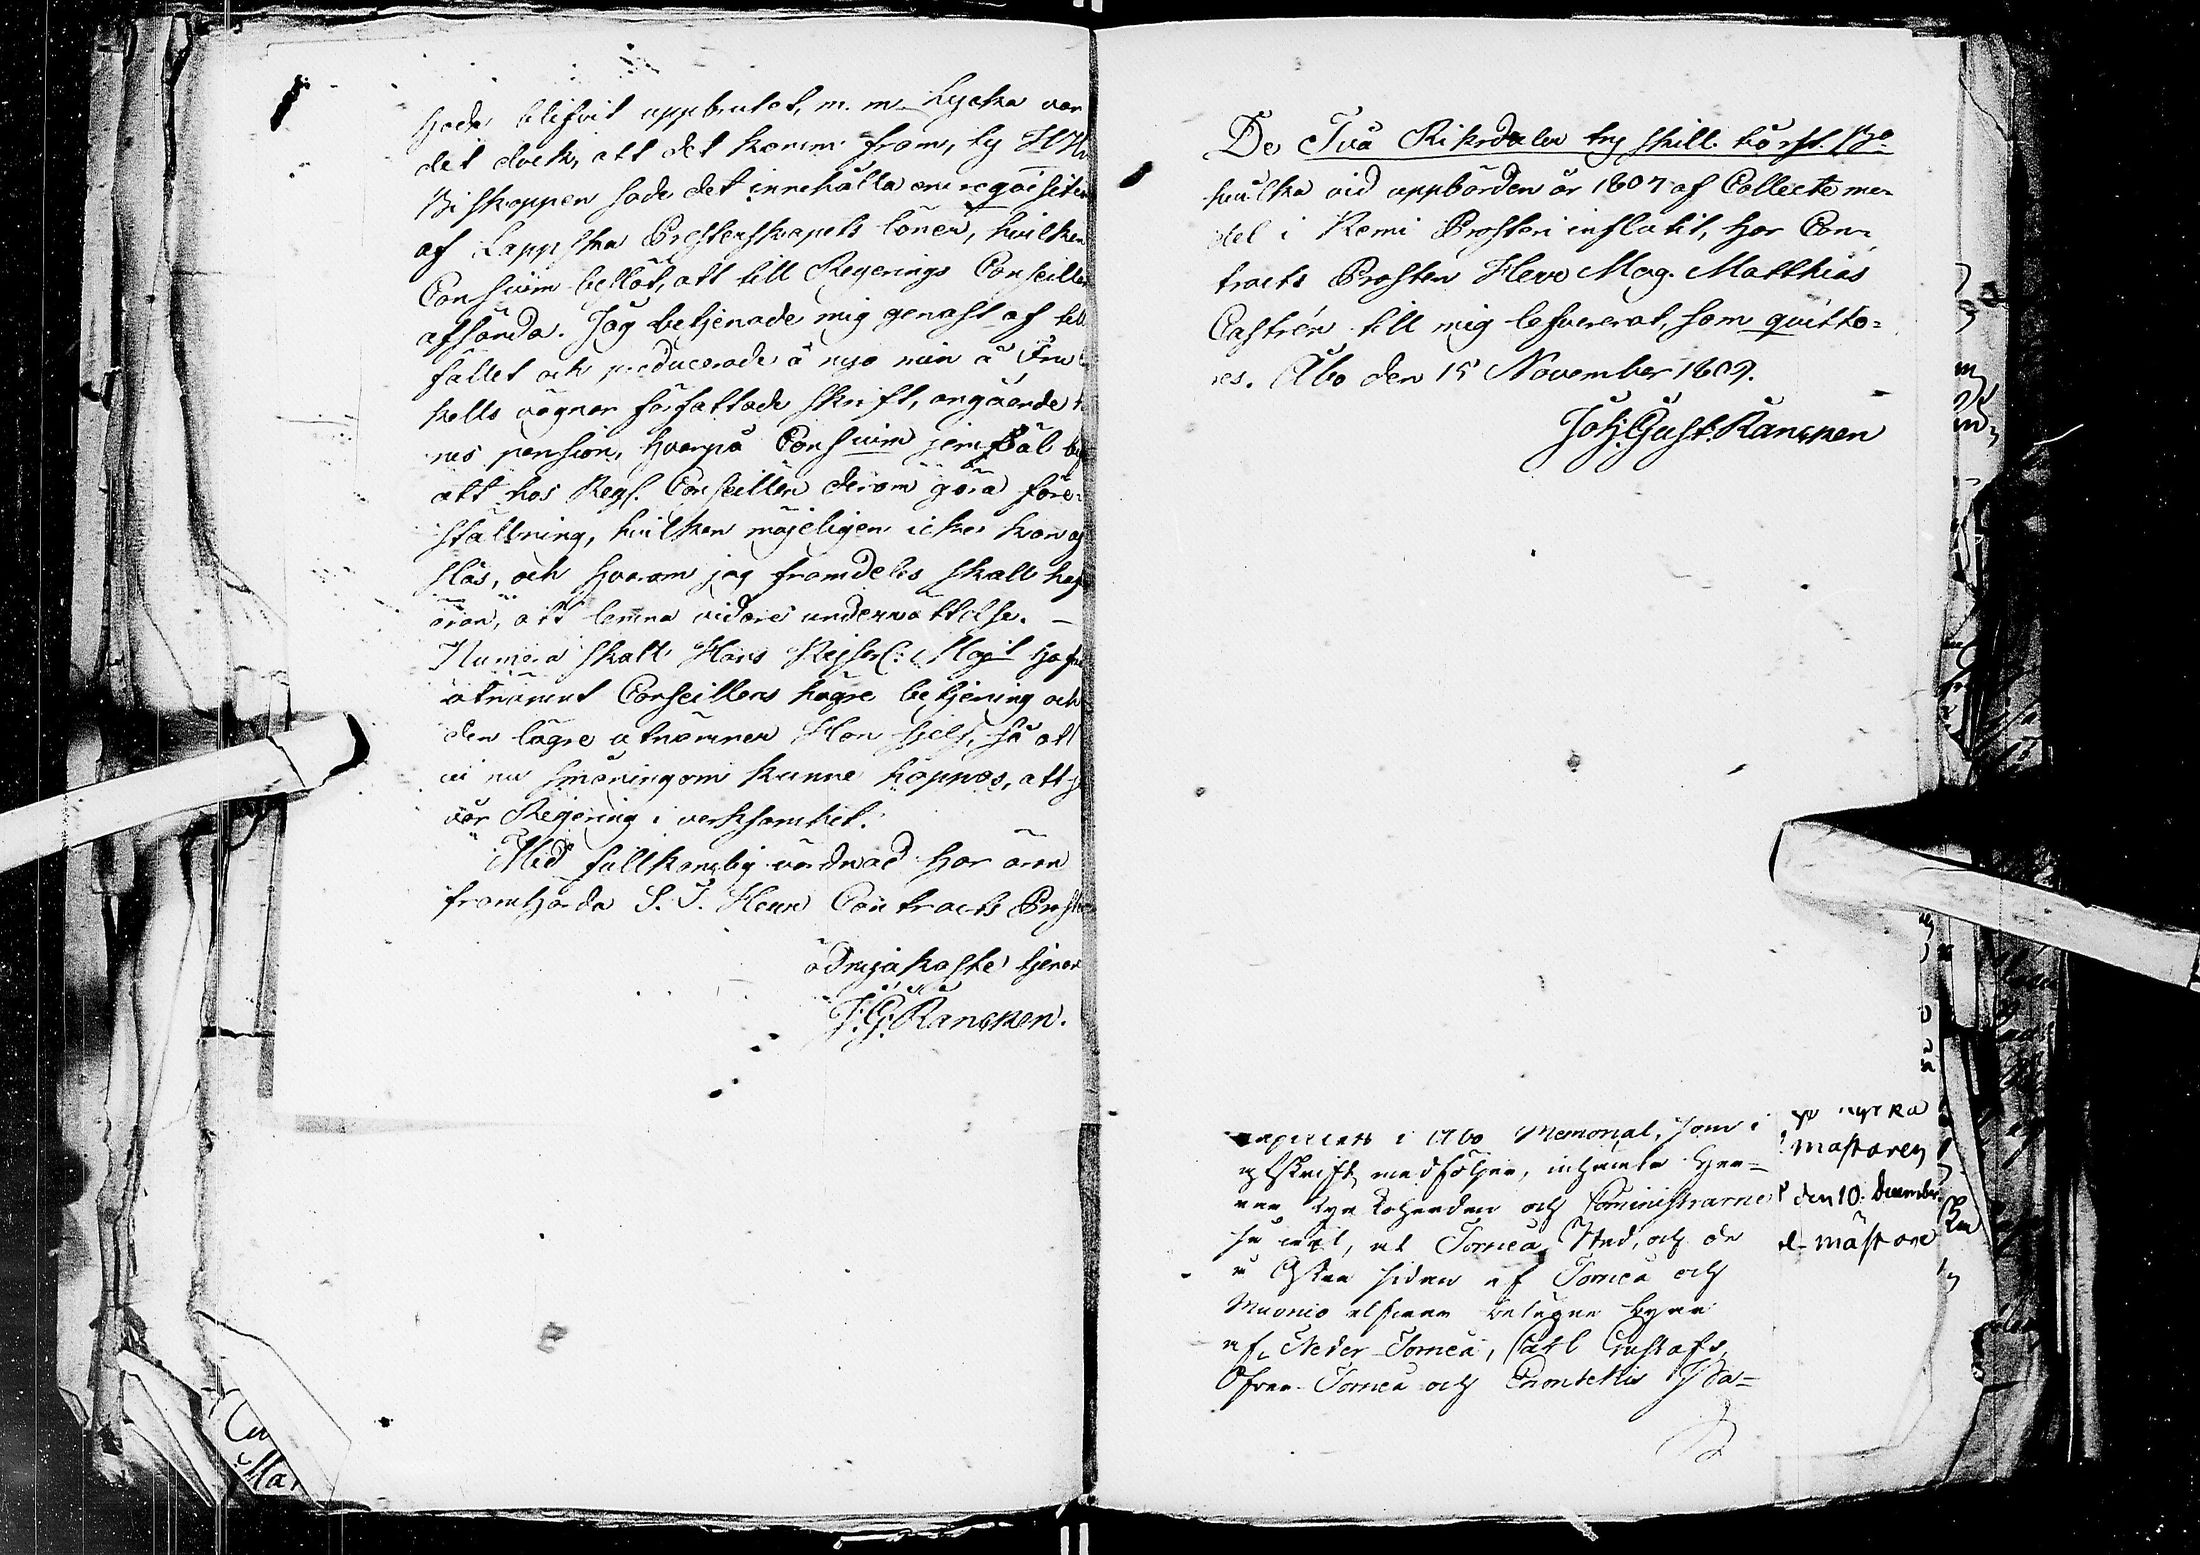 hade blifvit uppbrutet, m. m. Lycka var
det dock, att det komm fram, ty H. H.
Biskoppen sade det innehålla en reqvisition
af Lappska Presterskapets löner, hvilken
Consium beslöt, att till Regerings Conseillen
afsända. Jag betjenade mig genast af till
fället och producerade å nyo min å Fru
kells vägnar författade skrift, angående
nes pension, hvarpå Consium jemväl
att hos Regs. Conseillen derom göra före-
ställning, hvilken möjeligen icke kan af
slås, och hvarom jag framdeles skall haf
äran, att lemna vidare underrättelse. —
Numera skall Hans Kejserl. Majt hafva
utnämnt Conseillens högre betjening och
den lägre utnämner Hon sjelf, så att
vi nu småningom kunne hoppas, att
vår Regering i verksamhet.
Med fullkomlig vördnad har äran
framhärda S. T. Herr Contracts Prosten
ödmjukaste tjenare
J. G. Rancken.
De Två Riksdaler try skill. två rst. Bo
hvilka vid uppbörden år 1807 af Collecte me-
del i Kemi Prosteri influtit, har Con-
tracts Prosten Herr Mag. Matthias
Castrén till mig lefvererat, som quitte-
res. Åbo den 15 November 1809.
Joh. Gust. Rancken
i Åbo Memorial, som i
afskrift medföljer, inhämta Her-
rar Kyrkoherdar och Coministrarne
så väl, at Torneå Stad, och de
å Östra sidan af Torneå och
Muonio elfvarne belägne byar
af Neder Torneå, Carl Gustafs,
Öfver Torneå och Enontekis
kyrka
mästaren
den 10. December
mästare